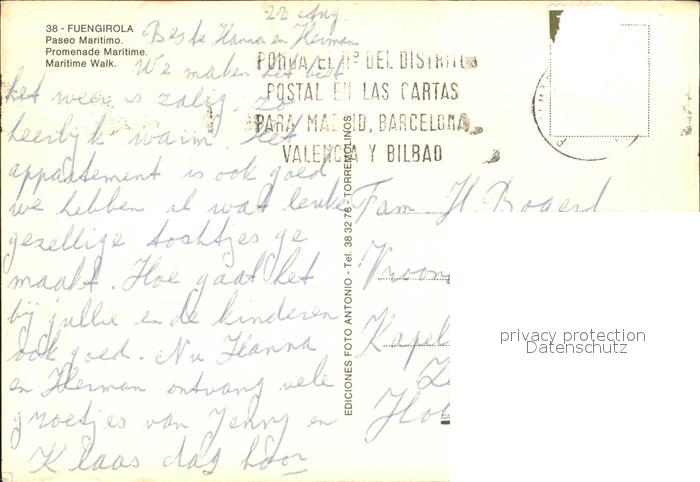 38 - FUENGIROLA
Paseo Maritimo.
Promenade Maritime.
Maritime Walk.
22 Aug.
Beste Hanna en Herman
We maken het best
het weer is zalig, zo
heerlijk warm. Het
appartement is ook goed
we hebben al wat leuke
gezellige tochtjes ge
maakt. Hoe gaat het
bij jullie en de kinderen
ook goed. Nu Hanna
en Herman ontvang vele
groetjes van Jenny en
Klaas dag hoor
PONGA EL Nº DEL DISTRITO
POSTAL EN LAS CARTAS
PARA MADRID, BARCELONA,
VALENCIA Y BILBAO
EDICIONES FOTO ANTONIO - Tel. 38 32 76 - TORREMOLINOS
Fam H. Bogerd
Vroon
Kapel
Z
Hol
privacy protection
Datenschutz